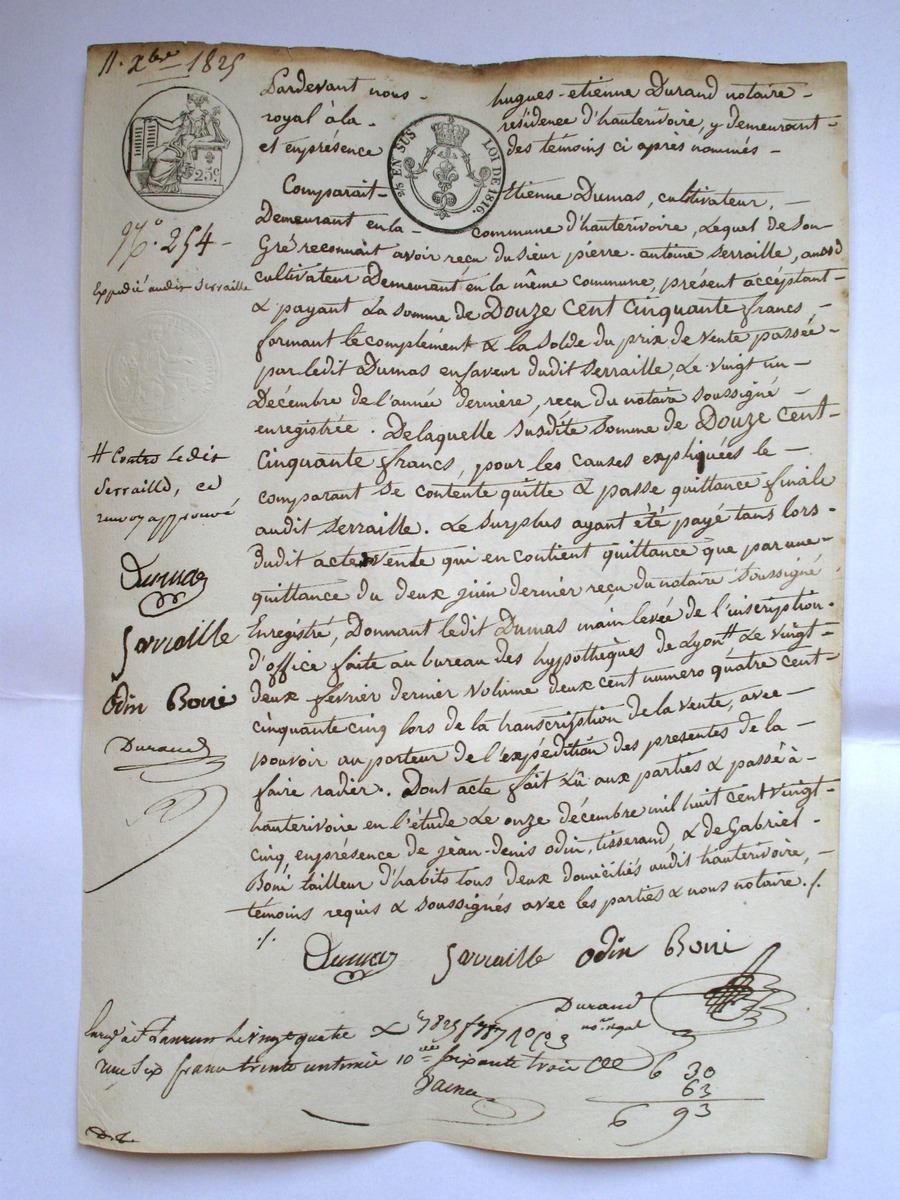 11. Xbre 1825
Pardevant nous - hugues-etienne Durand notaire -
royal à la - residence d'hauterivoire, y demeurant -
et en présence des témoins ci après nommés -
2/5 EN SUS LOI DE 1816.
25c
Comparait - Etienne Dumas, cultivateur, -
Demeurant en la - commune d'hauterivoire, Lequel de son -
Gré reconnait avoir reçu du sieur pierre-antoine Serraille, aussi
cultivateur Demeurant en la même commune, présent acceptant -
& payant La somme de Douze cent cinquante francs -
formant le complément & la solde du prix de vente passée -
par ledit Dumas en faveur dudit Serraille, Le vingt un -
Décembre de l'année dernière, reçu du notaire soussigné
enregistrée. Delaquelle susdite somme de Douze cent -
Cinquante francs, pour les causes expliquées le -
comparant se contente quitte & passe quittance finale
audit Serraille. Le surplus ayant été payé tans lors -
dudit acte vente qui en contient quittance que par une -
quittance du deux juin dernier reçu du notaire soussigné
Enregistré, Donnant ledit Dumas main levée de l'inscription -
d'office faite au bureau des hypothèques de Lyon # Le vingt -
deux février dernier volume deux cent numero quatre cent -
cinquante cinq lors de la transcription de la vente, avec -
pouvoir au porteur de l'expédition des presentes de la -
faire radier. Dont acte fait Lû aux parties & passé à -
hauterivoire en l'étude Le onze décembre mil huit cent vingt -
cinq, en présence de jean-denis odin, tisserand, & de Gabriel -
Boni tailleur d'habits tous deux domiciliés audit hauterivoire, -
témoins requis & soussignés avec les parties & nous notaire. /.
/.
No. 254 -
Expedié audit Serraille
# Contre Ledit
Serraille, ce
renvoy approuvé
Dumas
Serraille
Odin Boni
Durand
Dumas Serraille Odin Boni
Durand
no. royal
Le vingt quatre Xbre 1825
reçu Six francs trente centimes 10me soixante trois Ces
6 30
63
6 93